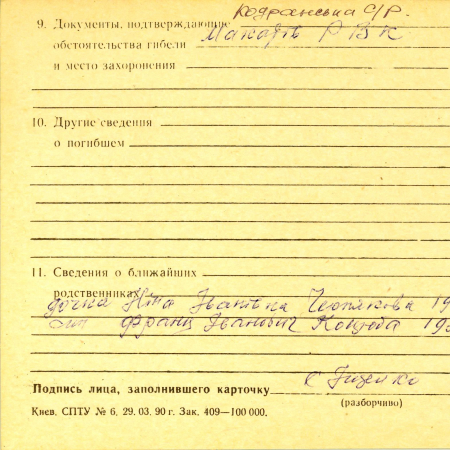 Кодранська с/р.
9. Документы, подтверждающие Макарів РВК
обстоятельства гибели
и место захоронения
10. Другие сведения
о погибшем
11. Сведения о ближайших
родственниках
дочка Іванівна Черпякова 19
Франц Іванович Коцюба 19
Подпись лица, заполнившего карточку
(разборчиво)
Киев. СПТУ № 6. 29. 03. 90 г. Зак. 409—100 000.